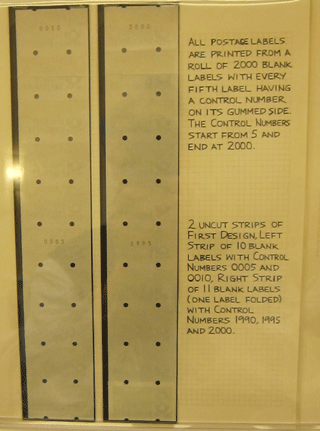 ALL POSTAGE LABELS
ARE PRINTED FROM A
ROLL OF 2000 BLANK
LABELS WITH EVERY
FIFTH LABEL HAVING
A CONTROL NUMBER
ON ITS GUMMED SIDE.
THE CONTROL NUMBERS
START FROM 5 AND
END AT 2000.
2 UNCUT STRIPS OF
FIRST DESIGN, LEFT
STRIP OF 10 BLANK
LABELS WITH CONTROL
NUMBERS 0005 AND
0010, RIGHT STRIP
OF 11 BLANK LABELS
(ONE LABEL FOLDED)
WITH CONTROL
NUMBERS 1990, 1995
AND 2000.